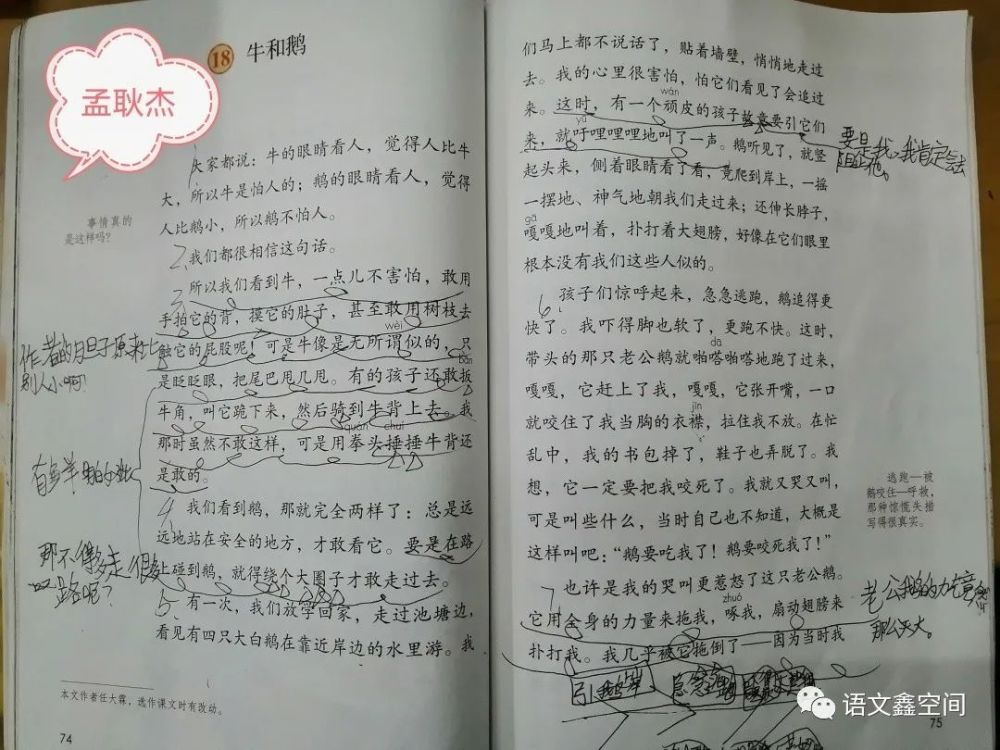 孟耿杰
18 牛和鹅
大家都说：牛的眼睛看人，觉得人比牛
大，所以牛是怕人的；鹅的眼睛看人，觉得
人比鹅小，所以鹅不怕人。
事情真的
是这样吗？
2
我们都很相信这句话。
3
所以我们看到牛，一点儿不害怕，敢用
手拍它的背，摸它的肚子，甚至敢用树枝去
wèi
触它的屁股呢！可是牛像是无所谓似的，只
bān
是眨眨眼，把尾巴甩几甩。有的孩子还敢扳
牛角，叫它跪下来，然后骑到牛背上去。我
quán chuí
那时虽然不敢这样，可是用拳头捶捶牛背还
是敢的。
作者的胆子原来比
别人小啊
4
我们看到鹅，那就完全两样了：总是远
远地站在安全的地方，才敢看它。要是在路
上碰到鹅，就得绕个大圈子才敢走过去。
那不得多走很多
路呢？
5
有一次，我们放学回家，走过池塘边，
看见有四只大白鹅在靠近岸边的水里游。我
本文作者任大霖，选作课文时有改动。
74
们马上都不说话了，贴着墙壁，悄悄地走过
去。我的心里很害怕，怕它们看见了会追过
wán
来。这时，有一个顽皮的孩子故意要引它们
yū
来，就吁哩哩哩地叫了一声。鹅听见了，就竖
起头来，侧着眼睛看了看，竟爬到岸上，一摇
一摆地、神气地朝我们走过来；还伸长脖子，
gā
嘎嘎地叫着，扑打着大翅膀，好像在它们眼里
根本没有我们这些人似的。
要是我，我肯定会去
阻止他。
6
孩子们惊呼起来，急急逃跑，鹅追得更
快了。我吓得脚也软了，更跑不快。这时，
dā
带头的那只老公鹅就啪嗒啪嗒地跑了过来，
嘎嘎，它赶上了我，嘎嘎，它张开嘴，一口
jīn
就咬住了我当胸的衣襟，拉住我不放。在忙
乱中，我的书包掉了，鞋子也弄脱了。我
想，它一定要把我咬死了。我就又哭又叫，
可是叫些什么，当时自己也不知道，大概是
这样叫吧：“鹅要吃我了！鹅要咬死我了！”
逃跑—被
鹅咬住—呼救，
那种惊慌失措
写得很真实。
7
也许是我的哭叫更惹怒了这只老公鹅。
zhuó
它用全身的力量来拖我，啄我，扇动翅膀来
扑打我。我几乎被它拖倒了——因为当时我
老公鹅的力气竟然
那么大。
语文鑫空间
75